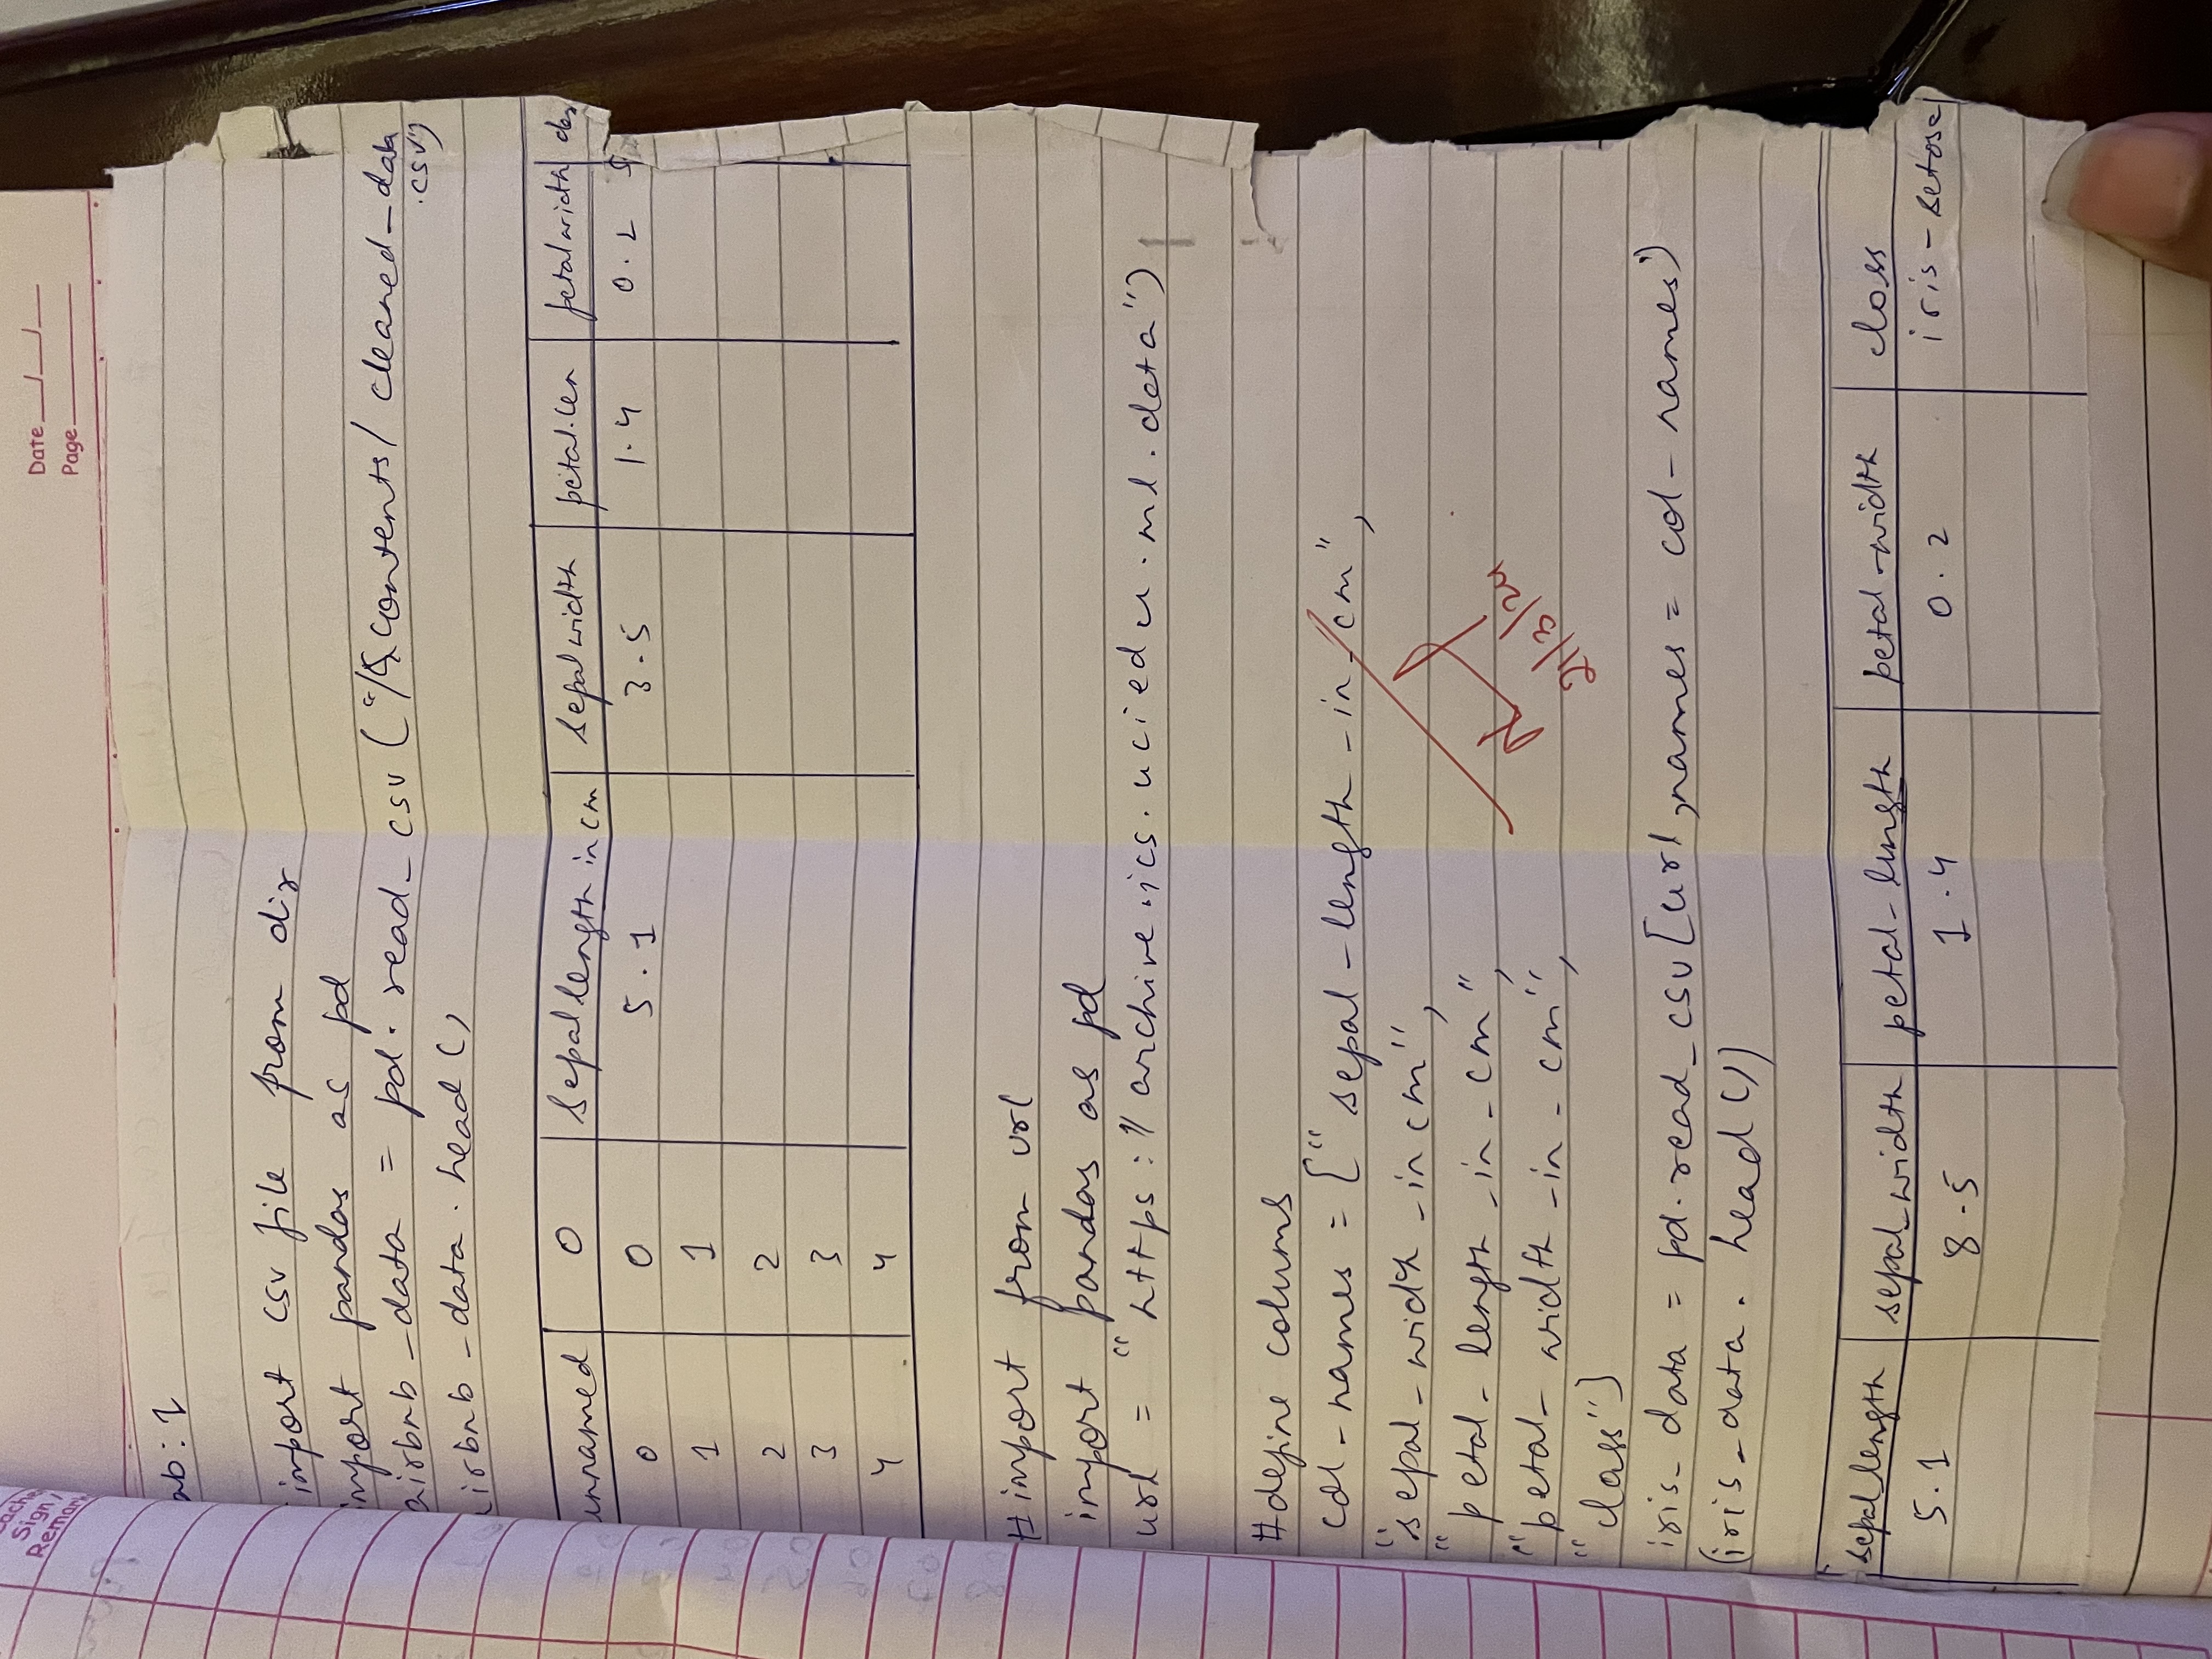 Sign /
Remark
Date
Page
ab: 1
import csv file from dir
import pandas as pd
airbnb_data = pd. read_csv ("/contents/ cleaned_data
.csv")
irbnb_data. head ()
unnamed 0 Sepal length in cm Sepal width petal.len petal width
0 0 5.1 3.5 1.4 0.2
1 1
2 2
3 3
4 4
#import from url
import pandas as pd
url = "https://archive.ics.uciedu.ml.data")
#define colums
col-names = ["sepal-length-in-cm",
"sepal-width-in cm",
"petal-length-in-cm",
"petal-width-in-cm",
"class"]
iris_data = pd.read_csv[url,names = col-names)
(iris_data. head())
21/3/24
sepal length sepal_width petal-length petal-width class
5.1 8.5 1.4 0.2 iris-setosa